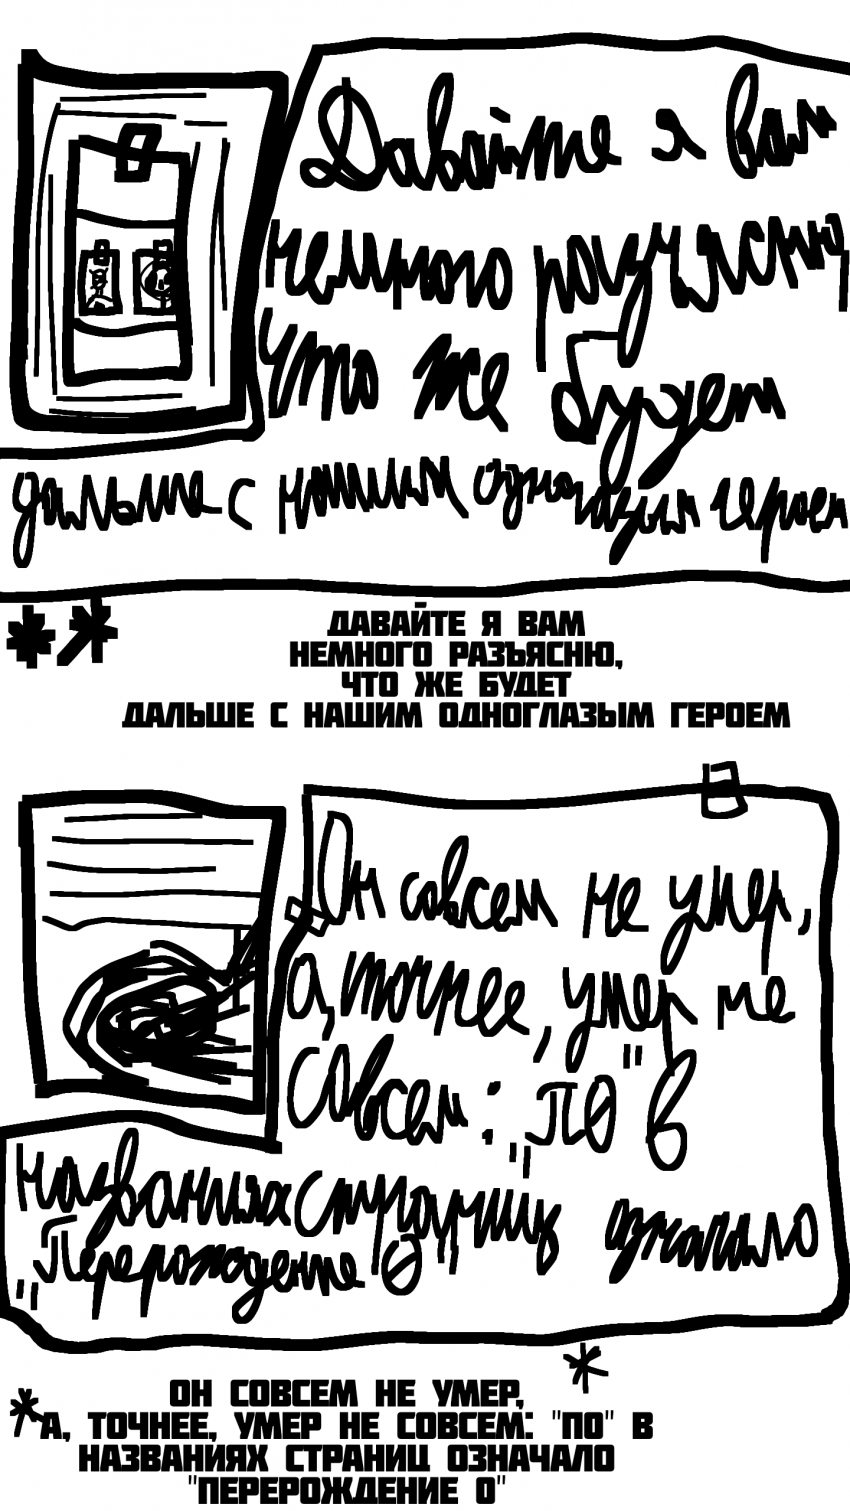 Давайте я вам
немного разъясню,
что же будет
дальше с нашим одноглазым героем
**
ДАВАЙТЕ Я ВАМ
НЕМНОГО РАЗЪЯСНЮ,
ЧТО ЖЕ БУДЕТ
ДАЛЬШЕ С НАШИМ ОДНОГЛАЗЫМ ГЕРОЕМ
Он совсем не умер,
а, точнее, умер не
совсем: "ПΘ" в
названиях страниц означало
"Перерождение Θ"
*
ОН СОВСЕМ НЕ УМЕР,
*А, ТОЧНЕЕ, УМЕР НЕ СОВСЕМ: "ПО" В
НАЗВАНИЯХ СТРАНИЦ ОЗНАЧАЛО
"ПЕРЕРОЖДЕНИЕ О"